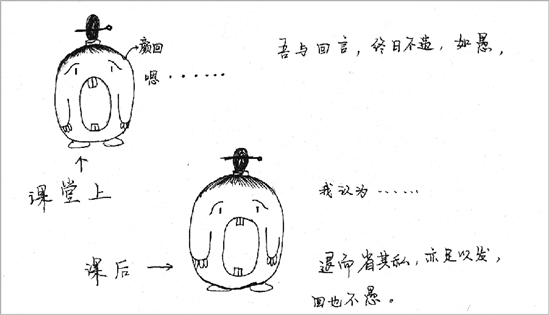 颜回
吾与回言，终日不违，如愚，
嗯……
课堂上
我认为……
课后
退而省其私，亦足以发，
回也不愚。